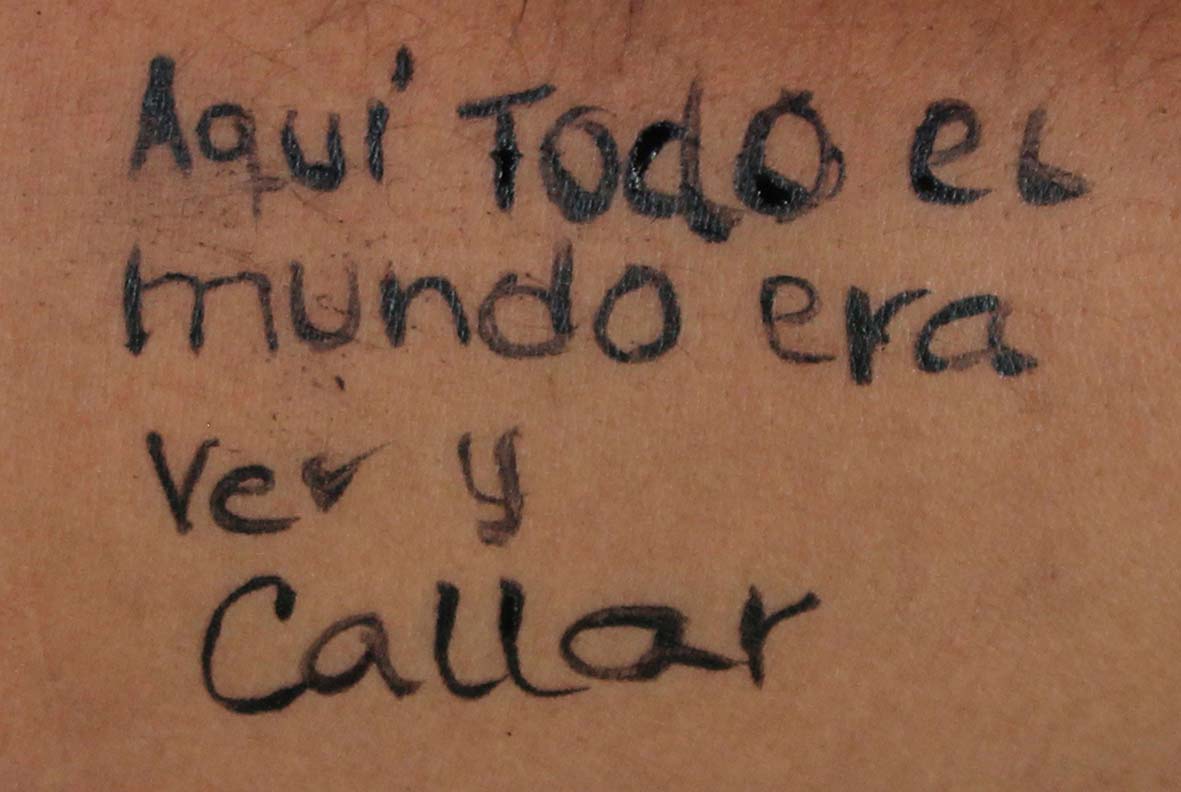 Aquí Todo el
mundo era
Ver y
Callar